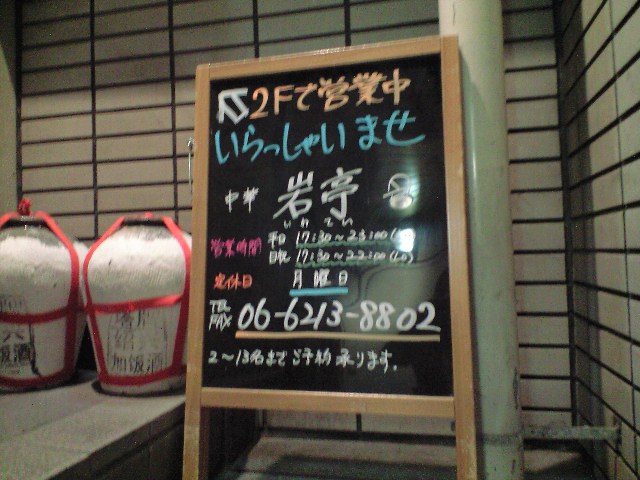 2Fで営業中
いらっしゃいませ
中華 岩亭
いわてい
営業時間 和 17:30~23:00
日祝 17:30~22:00
定休日 月曜日
TEL
FAX 06-6213-8802
2~13名までご予約承ります。
加饭酒